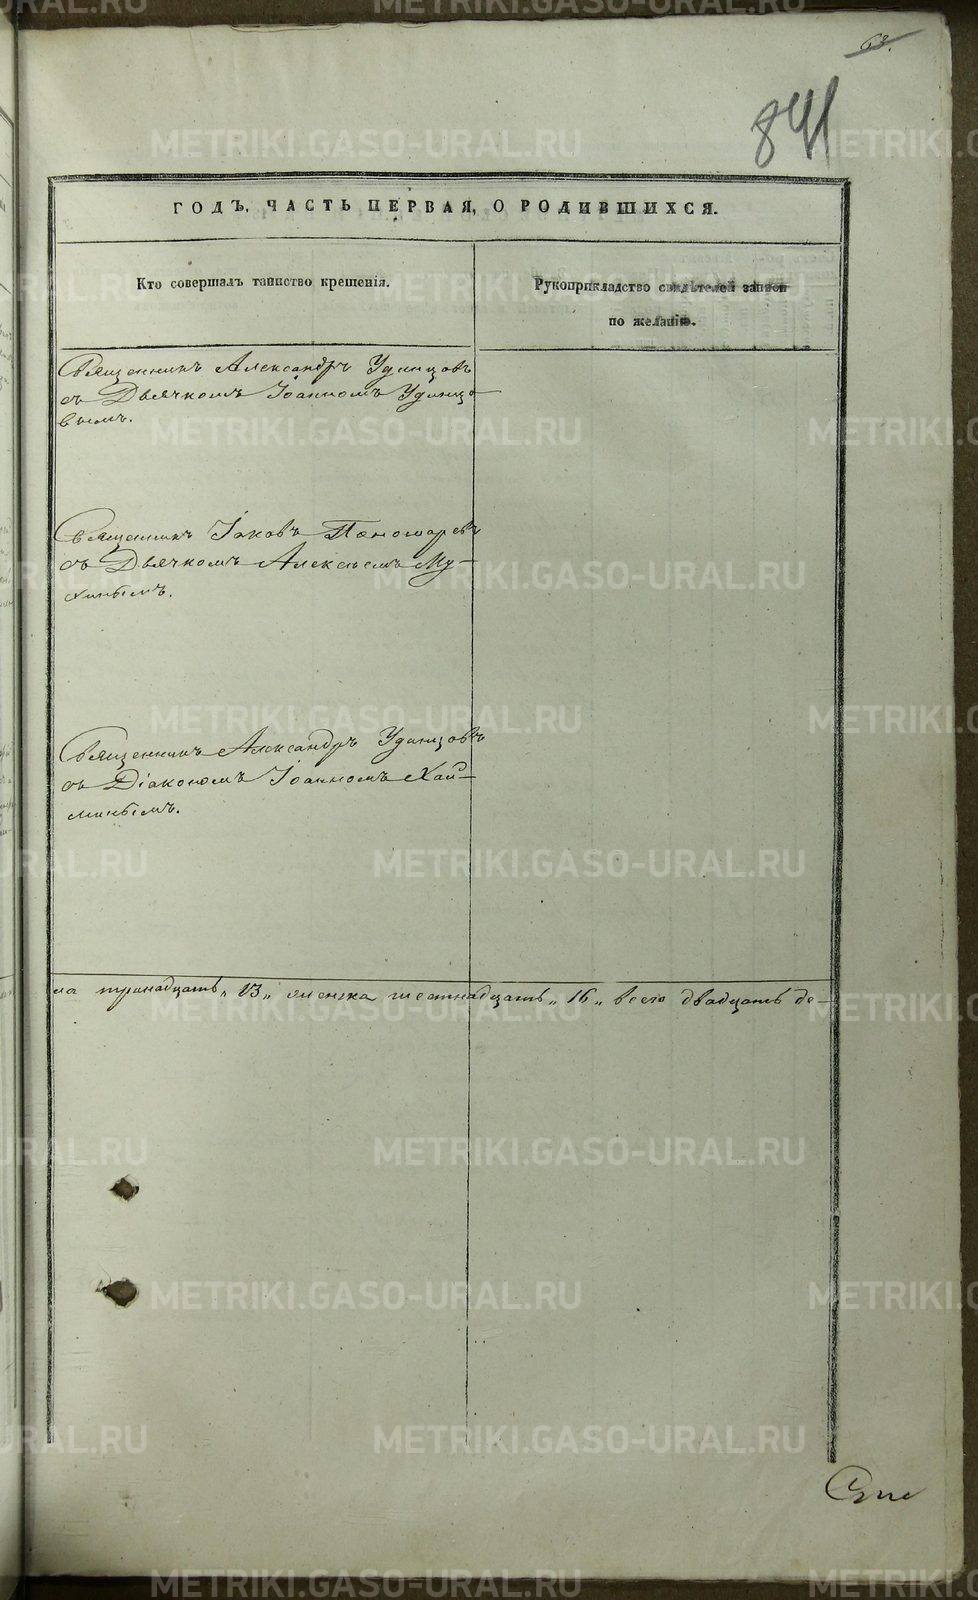 63.
841
ГОДЪ, ЧАСТЬ ПЕРВАЯ, О РОДИВШИХСЯ.
Кто совершалъ таинство крещенія.
Рукоприкладство свидѣтелей записи
по желанію.
Священникъ Александръ Удинцовъ
съ Дьячкомъ Іоанномъ Удинцо-
вымъ.
Священникъ Іаковъ Пономаревъ
съ Дьячкомъ Алексѣемъ Му-
хинымъ.
Священникъ Александръ Удинцовъ
съ Діакономъ Іоанномъ Хай-
минымъ.
ла тринадцать „13„ женска шестнадцать „16„ всего двадцать де-
METRIKI.GASO-URAL.RU